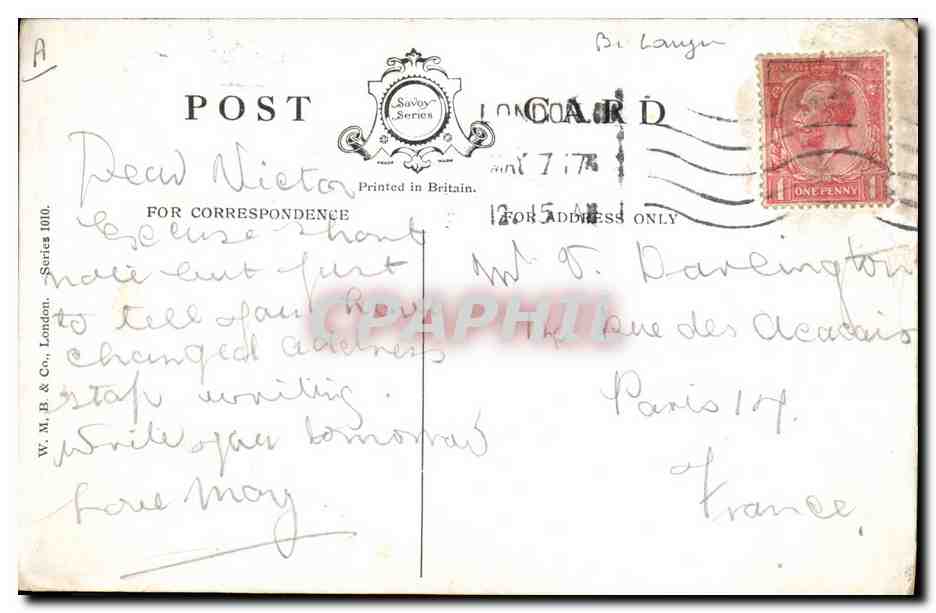 A
POST CARD
Savoy
Series
TRADE MARK
Printed in Britain.
LONDON
7 17
12.15 AM
ONE PENNY
1 1
FOR CORRESPONDENCE
FOR ADDRESS ONLY
W. M. B. & Co., London. Series 1010.
Dear Victor
Excuse short
note but just
to tell you have
changed address
stop writing.
Write you tomorrow
Love May
Mr V. Darlington
Rue des Acacais
Paris 17.
France.
CPAPHIL